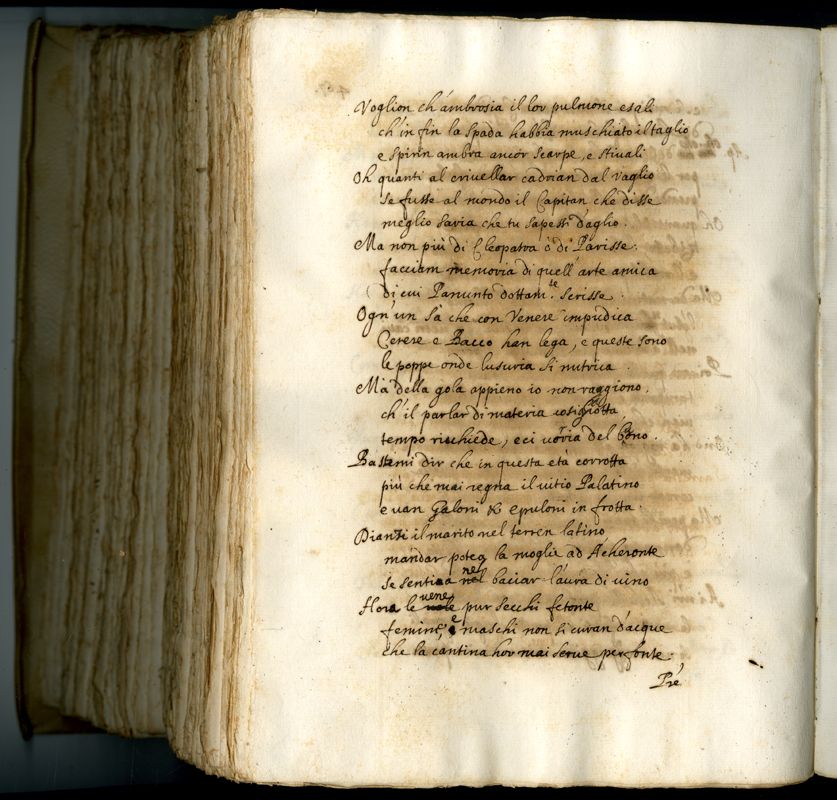 Voglion ch'ambrosia il lor pulmone esali
ch'in fin la spada habbia muschiato il taglio
e spirin ambra ancor scarpe, e stivali
Oh quanti al crivellar cadrian dal vaglio
se fusse al mondo il Capitan che disse
meglio saria che tu sapesti d'aglio.
Ma non più di Cleopatra ò di Parisse.
facciam memoria di quell'arte amica
di cui Panunto dottam.te scrisse.
Ogn'un sà che con Venere impudica
Cerere e Bacco han lega, e queste sono
le poppe onde lusuria si nutrica.
Mà della gola appieno io non raggiono,
ch'il parlar di materia cosi ghiotta
tempo rischiede, e ci vorria del bono.
Bastimi dir che in questa età corrotta
più che mai regna il vitio Palatino
e van Galoni & epuloni in frotta.
Dianzi il marito nel terren latino
mandar potea la moglie ad Acheronte
se sentiva nel baciar l'aura di vino
Hora le vene pur secchi fetonte
femine, e maschi non si curan d'acque
che la cantina hor mai serve per fonte.
Pre